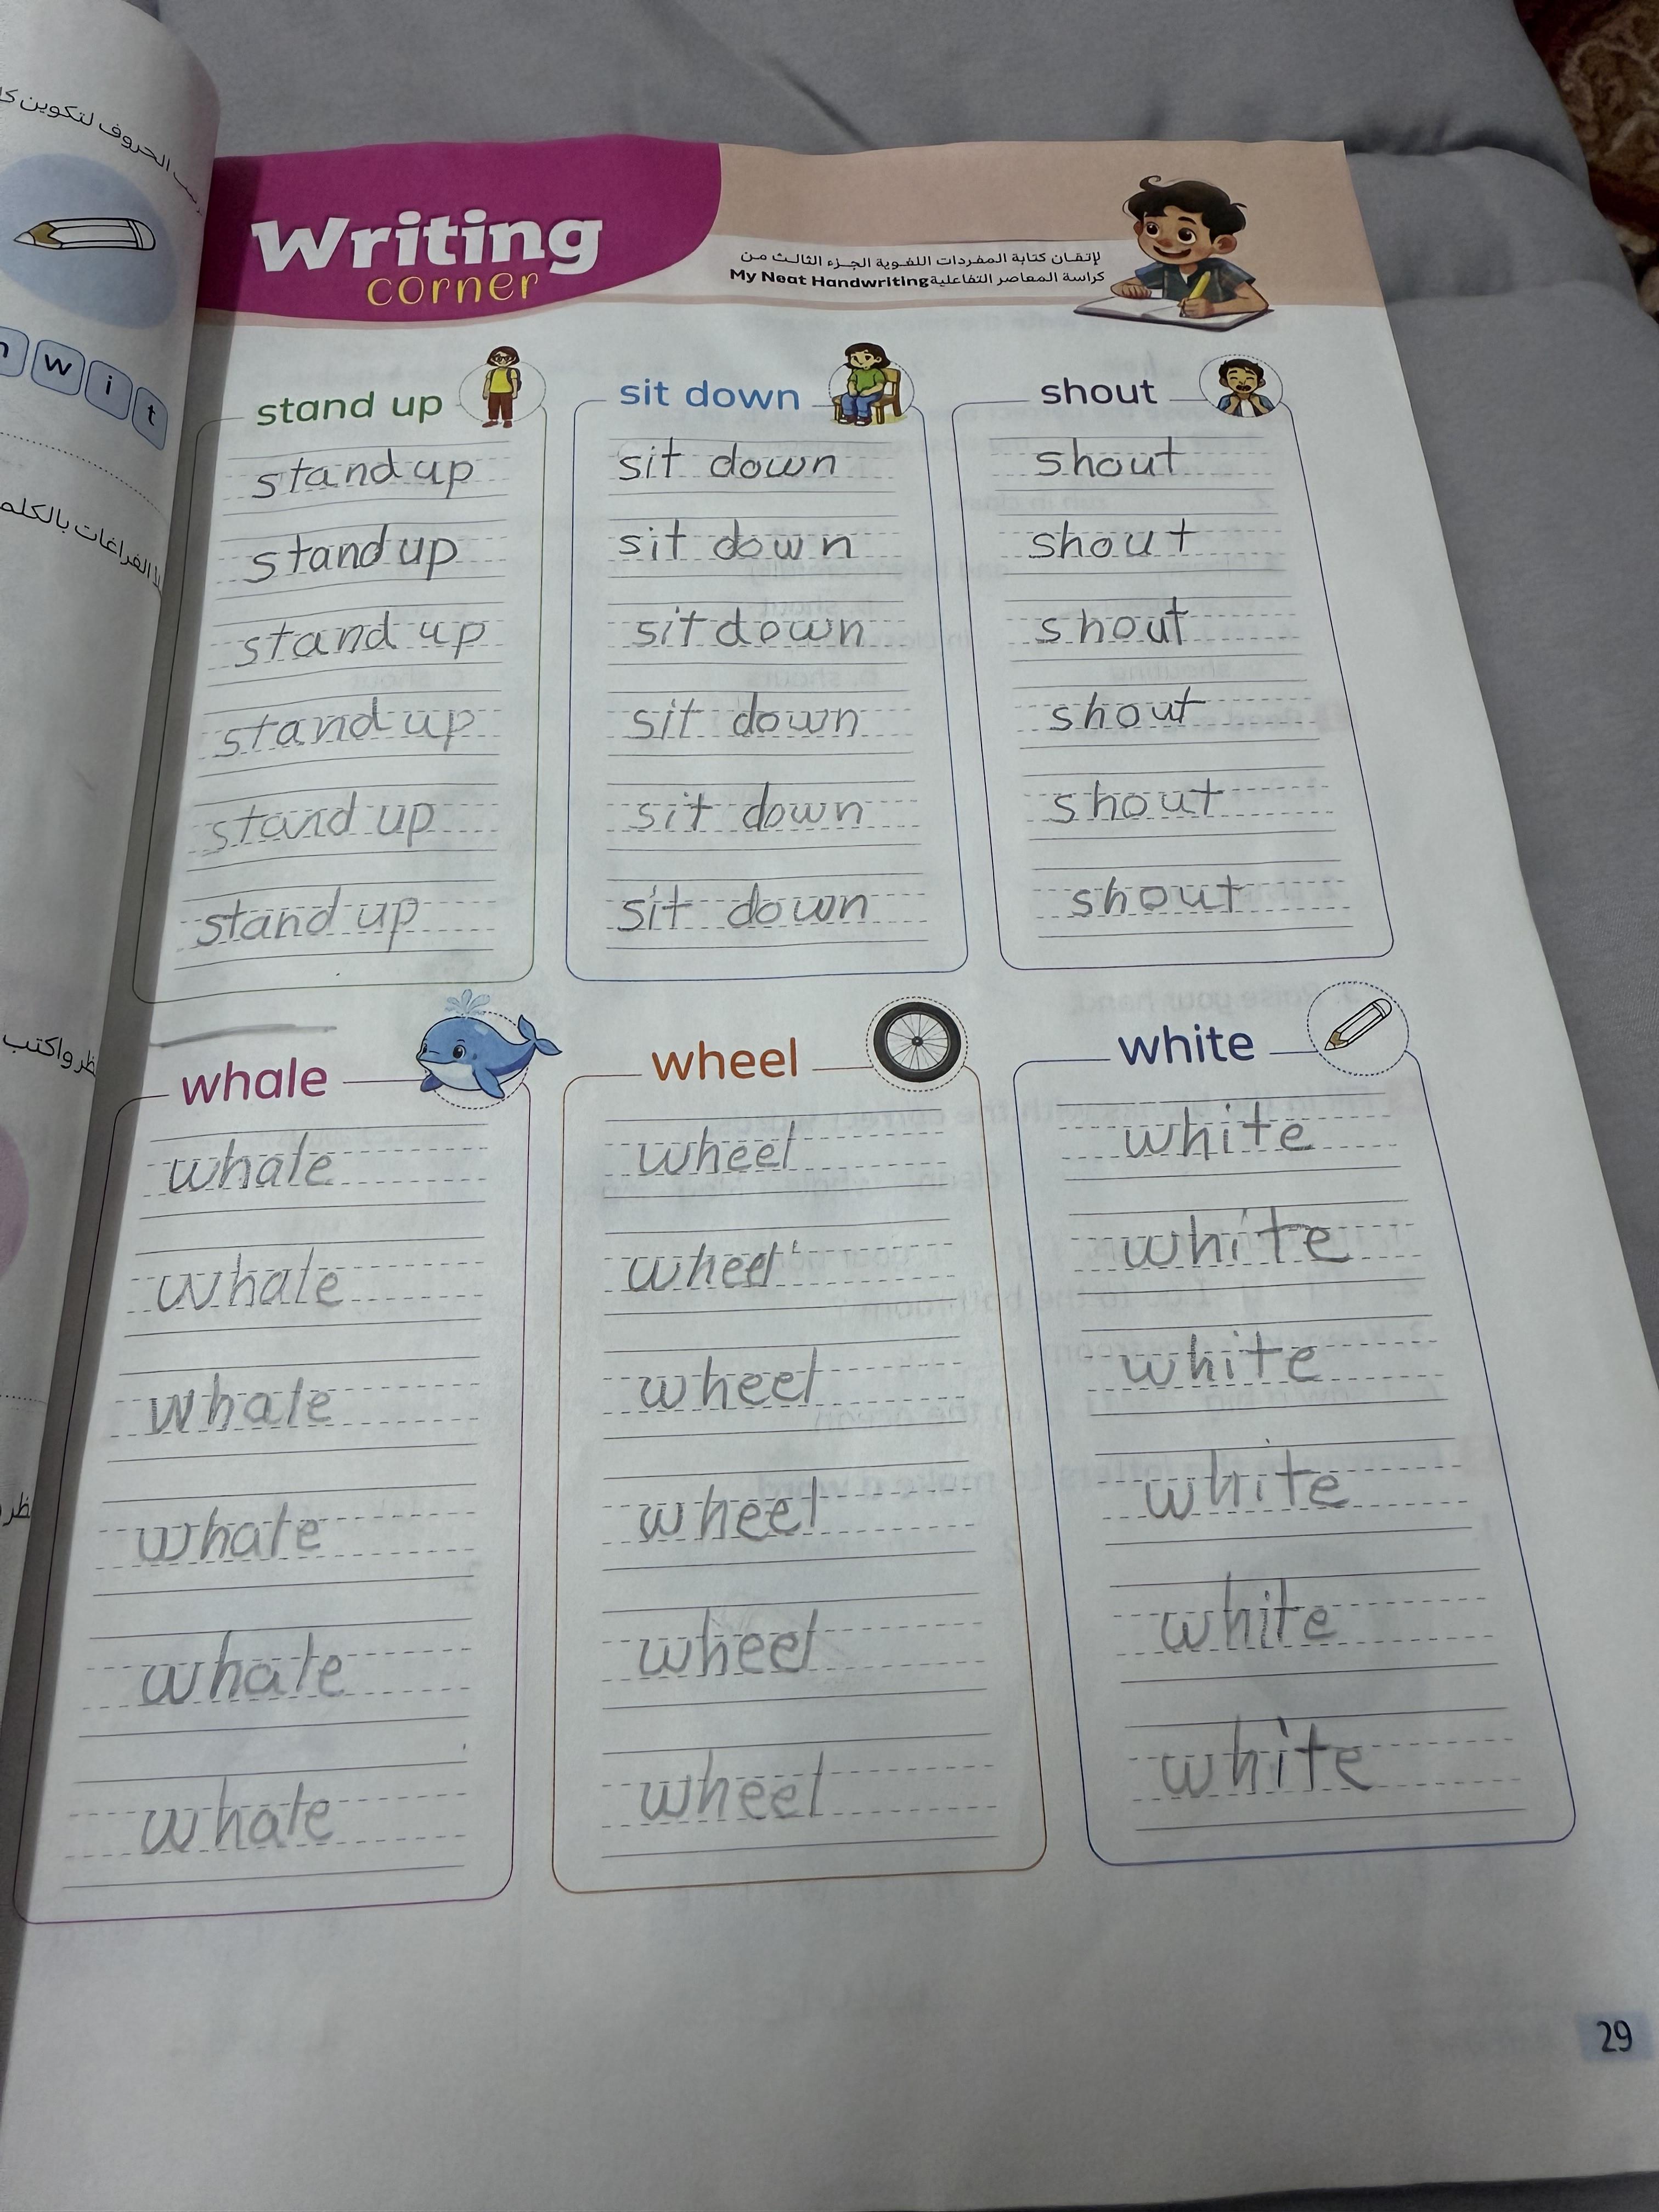 Writing
corner
لإتقـان كتابة المفـردات اللغـوية الجـزء الثالـث مـن
كراسة المعاصر التفاعلية My Neat Handwriting
الحروف لتكوين
w i t
الفراغات بالكلم
واكتب
stand up
stand up
stand up
stand up
stand up
stand up
stand up
sit down
sit down
sit down
sit down
sit down
sit down
sit down
shout
shout
shout
shout
shout
shout
shout
whale
whale
whale
whale
whale
whale
whale
wheel
wheel
wheel
wheel
wheel
wheel
wheel
white
white
white
white
white
white
white
29